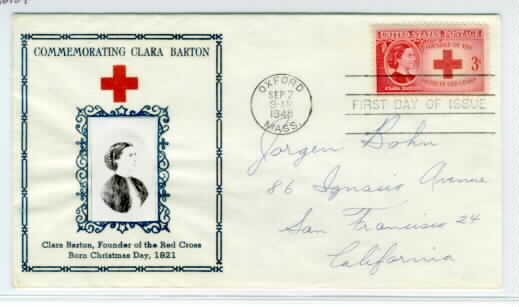 COMMEMORATING CLARA BARTON
Clara Barton, Founder of the Red Cross
Born Christmas Day, 1821
OXFORD
SEP 7
9-AM
1948
MASS.
UNITED STATES POSTAGE
FOUNDER OF THE
AMERICAN RED CROSS
3¢
CLARA BARTON
FIRST DAY OF ISSUE
Jorgen Bohn
86 Ignacio Avenue
San Francisco 24
California